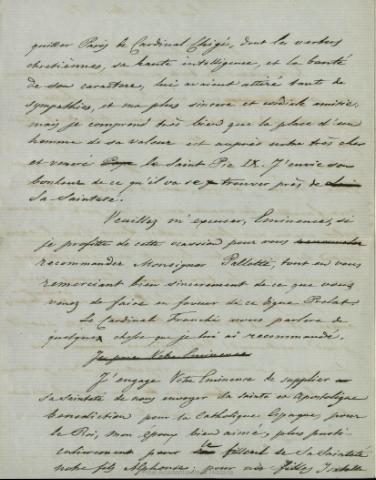 quitter Paris le Cardinal Chigi, dont les vertus
chretiennes, sa haute intelligence, et la bonté
de son caractere, lui avaient attiré tante de
sympathies, et ma plus sincere et cordiale amitié;
mais je comprend très bien que la place d'un
homme de sa valeur est auprès notre très cher
et veneré Pape le Saint Pie IX. J'envie son
bonheur de ce qu'il va se trouver près de
Sa Sainteté.
Veuillez m'excuser, Eminence, si
je profite de cette ocassion pour vous
recommander Monsigner Pallotti, tout en vous
remerciant bien sincerement de ce que vous
venez de faire en faveur de ce digne Prelat.
Le Cardinale Franchi vous parlera de
quelques chose que je lui ai recommandé.
Je prie Votre Eminence
J'engage Votre Eminence de supplier
sa sainteté de nous envoyer la sainte et Apostolique
benediction pour la Catholique Espagne, pour
le Roi, mon epoux bien aimé, plus parti-
culièrement pour le filleul de Sa Sainteté
notre fils Alphonse; pour nos filles Isabelle